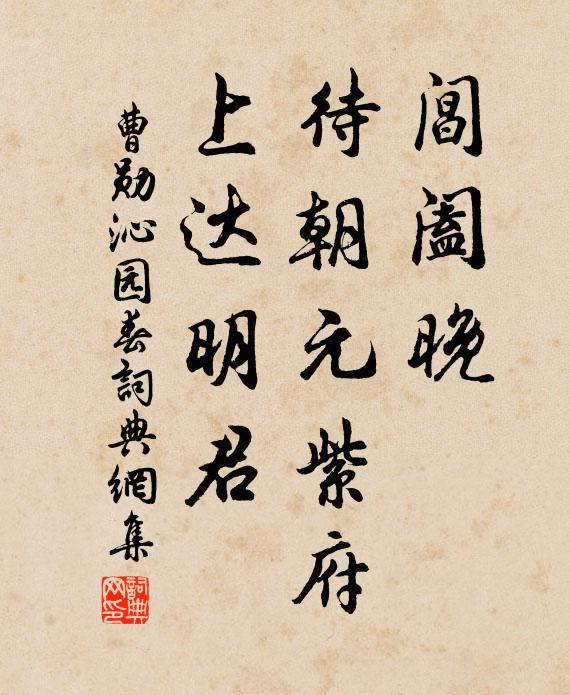 閶阖晚
待朝元紫府
上达明君
曹勋沁园春詞典網集
詞典
网印